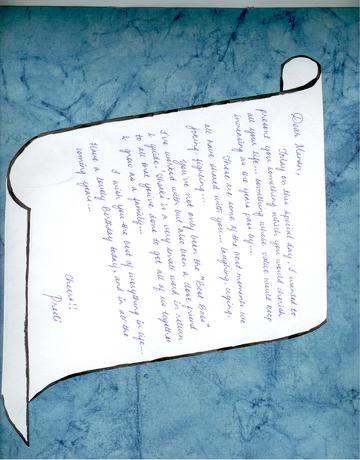 Dear Menon,
Today on this special day, I wanted to
present you something which you would cherish
all your life... something whose value would keep
increasing as the years pass by...
These are some of the best moments we
all have shared with you... laughing, crying,
being, fighting...
You've not only been the "Best Boss"
I've worked with but also been a close friend
& guide. 'Thanks' is a very small word in return
to all that you've done to get all of us together
& grow as a family...
I wish you the best of everything in life...
Have a lovely birthday today, and in all the
coming years...
Cheers!!
Preeti